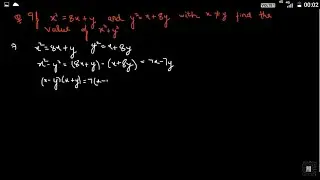 00:02
Q. If x² = 8x + y and y² = x + 8y with x ≠ y find the
value of x² + y²
→ x² = 8x + y   y² = x + 8y
x² - y² = (8x + y) - (x + 8y) = 7x - 7y
(x - y)(x + y) = 7(x -